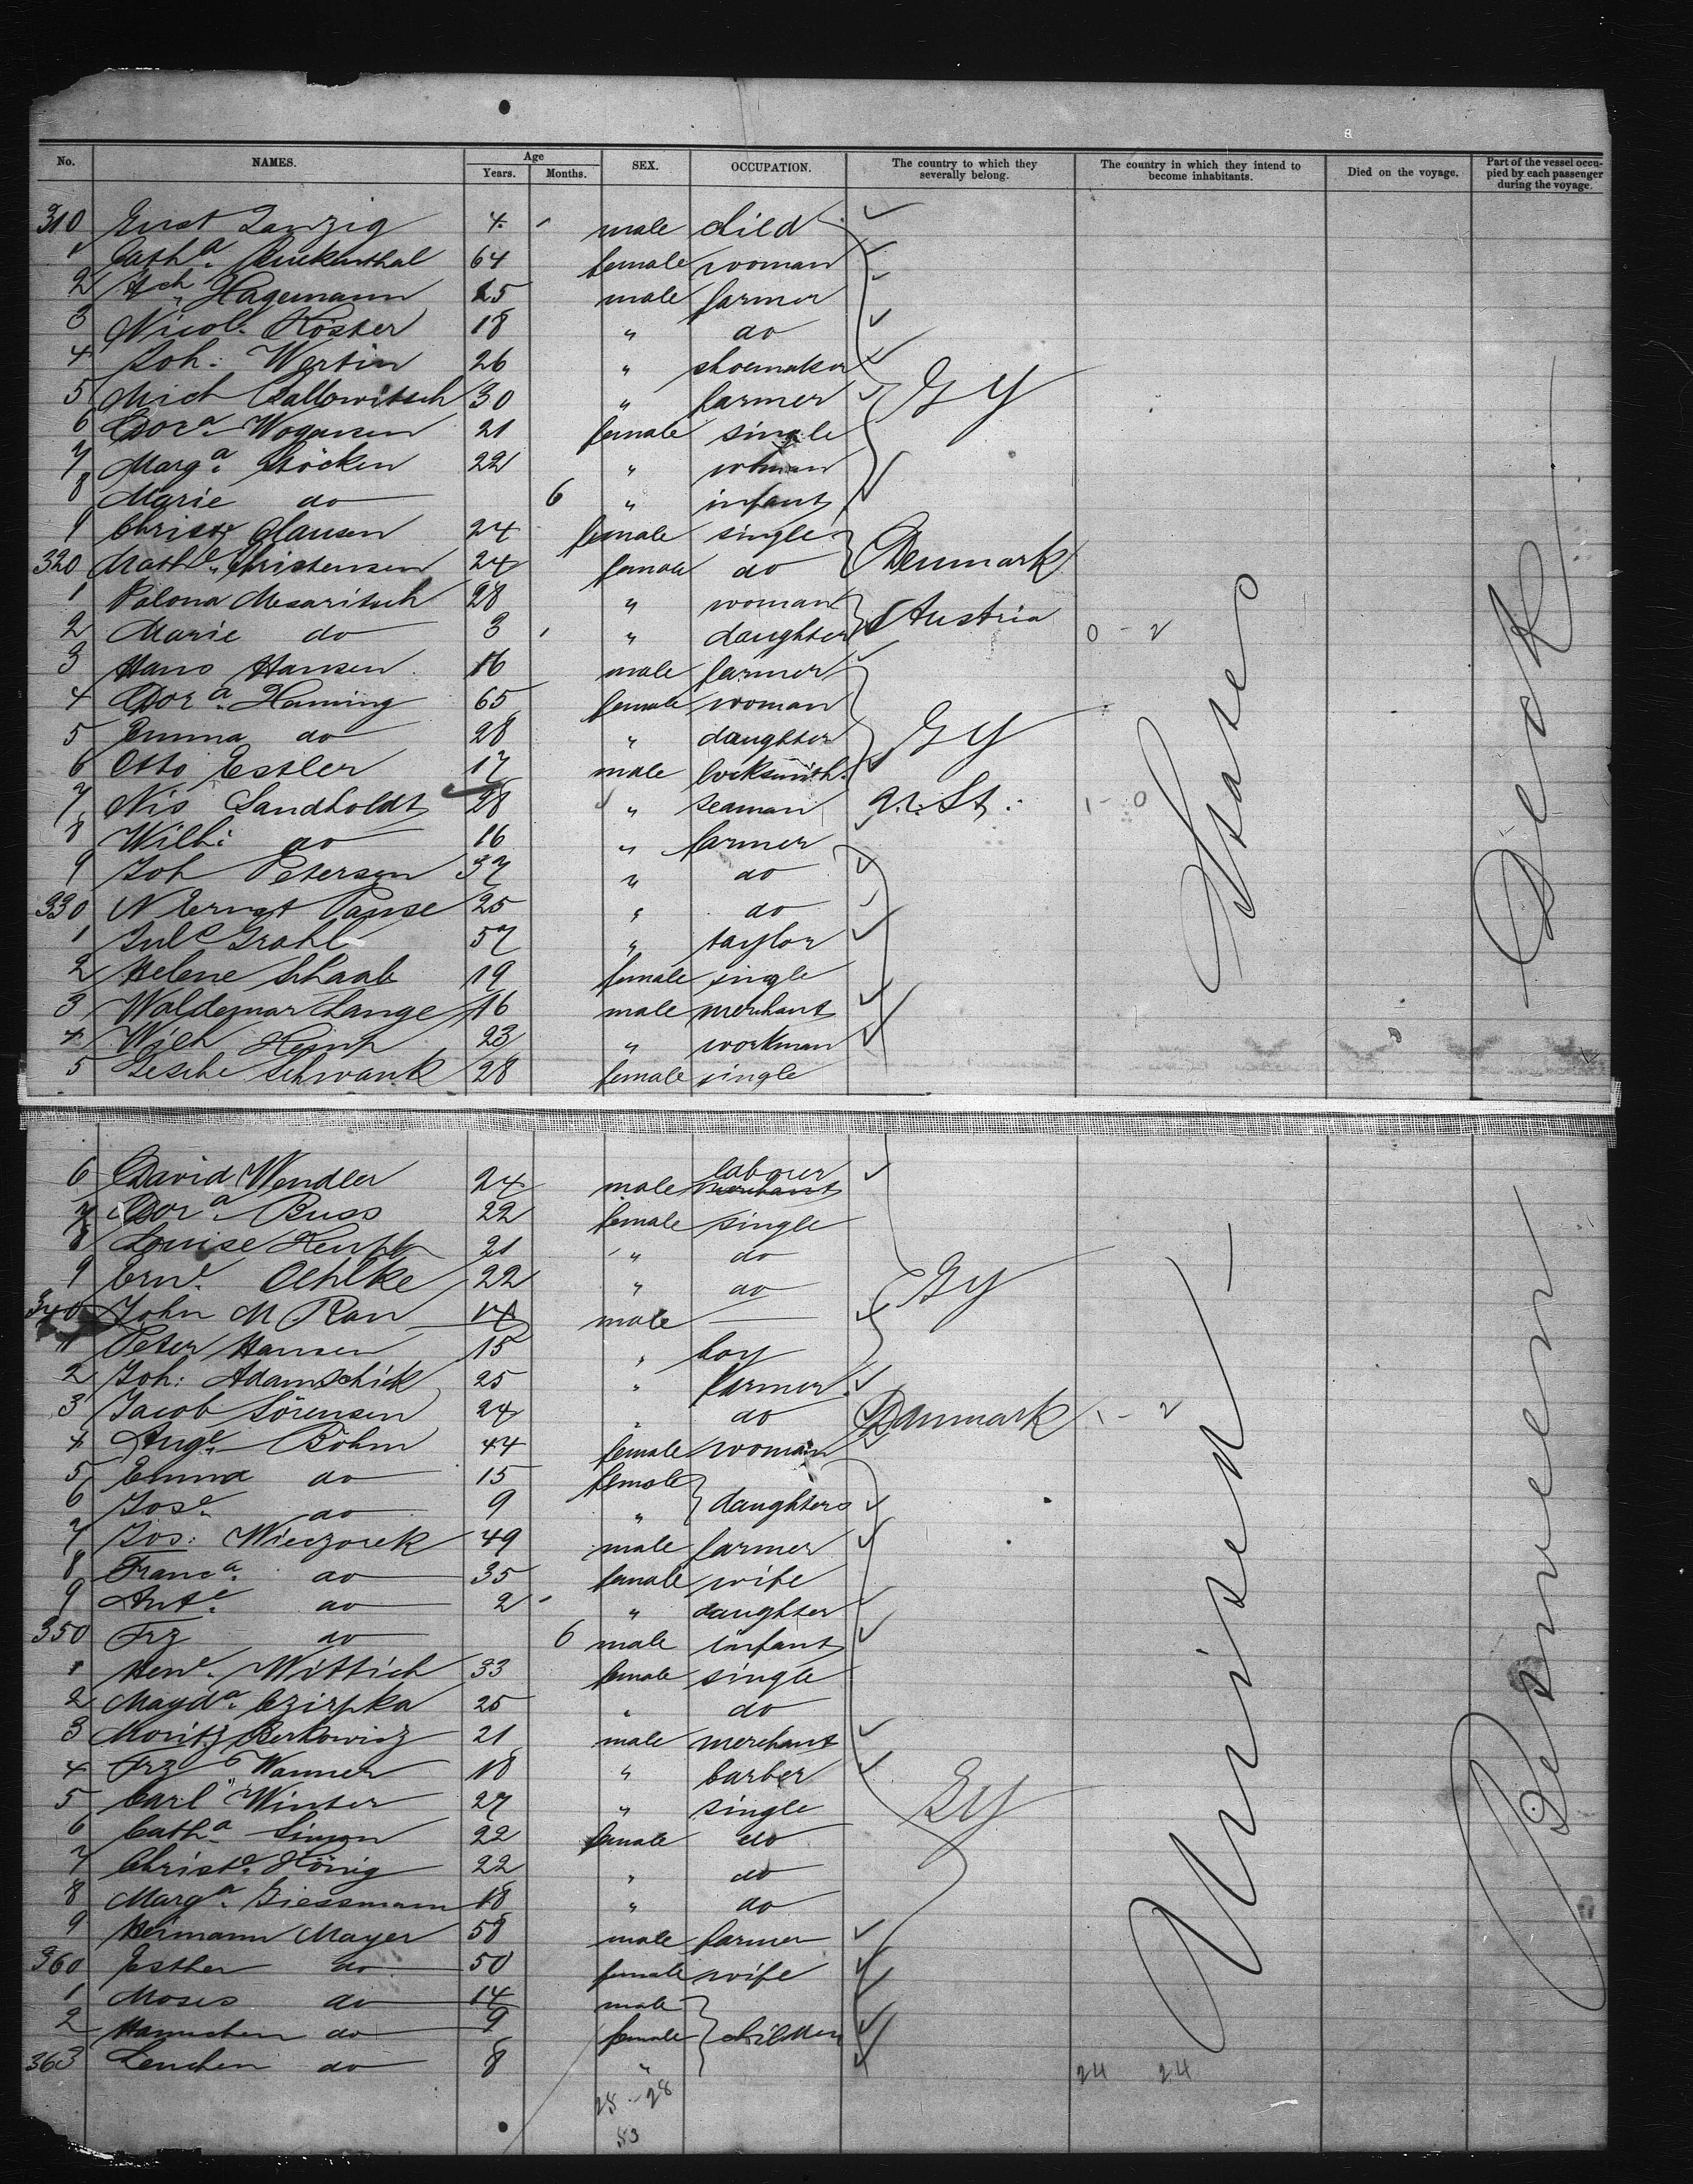 No. NAMES. Age Years. Months. SEX. OCCUPATION. The country to which they severally belong. The country in which they intend to become inhabitants. Died on the voyage. Part of the vessel occupied by each passenger during the voyage.
310 Ernst Janzig 4 male child
1 Cath.a Rinkenthal 64 female woman
2 Hch Hagemann 25 male farmer
3 Nicol. Köster 18 " do
4 Joh: Wertin 26 " shoemaker
5 Mich Callowitsch 30 " farmer Gy
6 Dor.a Wogensen 21 female single
7 Marg.a Stöcken 22 " woman
8 Marie do 6 " infant
9 Christ Clausen 24 female single
320 Math.e Christensen 24 female do Denmark
1 Polona Mesaritsch 28 " woman
2 Marie do 3 " daughter Austria 0 - 2
3 Hans Hansen 16 male farmer
4 Dor.a Haming 65 female woman
5 Emma do 28 " daughter Gy
6 Otto Estler 17 male locksmith
7 Nis Sandholdt 28 " seaman U. St. 1 - 0
8 Wilh: do 16 " farmer
9 Joh Peterson 37 " do
330 N Ernst Panse 25 " do
1 Jul Grahl 57 " taylor
2 Helene Schaab 19 female single
3 Waldemar Lange 16 male merchant
4 Wilh Heint 23 " workman
5 Gesche Schwank 28 female single
6 David Wendler 24 male labourer merchant
7 Dor.a Buss 22 female single
8 Louise Kempf 21 " do
9 Ern.e Oehlke 22 " do Gy
340 John M Rau 14 male
1 Peter Hansen 15 " boy
2 Joh: Adamschick 25 " farmer
3 Jacob Sörensen 24 " do Danmark 1 - 2
4 Aug.e Böhm 44 female woman
5 Emma do 15 female
6 Jos.e do 9 " daughters
7 Jos: Wieczorek 49 male farmer
8 Franc.a do 35 female wife
9 Ant.e do 2 " daughter
350 Frz do 6 male infant
1 Hen.e Wittich 33 female single
2 Magd.a Czirpka 25 " do
3 Moritz Berkowicz 21 male merchant
4 Frz Wanner 18 " barber
5 Carl Winter 27 " single Gy
6 Cath.a Simon 22 female do
7 Christ.e Hönig 22 " do
8 Marg.a Giessmann 18 " do
9 Hermann Mayer 58 male farmer
360 Esther do 50 female wife
1 Moses do 14 male
2 Hannchen do 9 female children
363 Lenchen do 8 " 24 24
25 - 28
53
United States
Between Deck